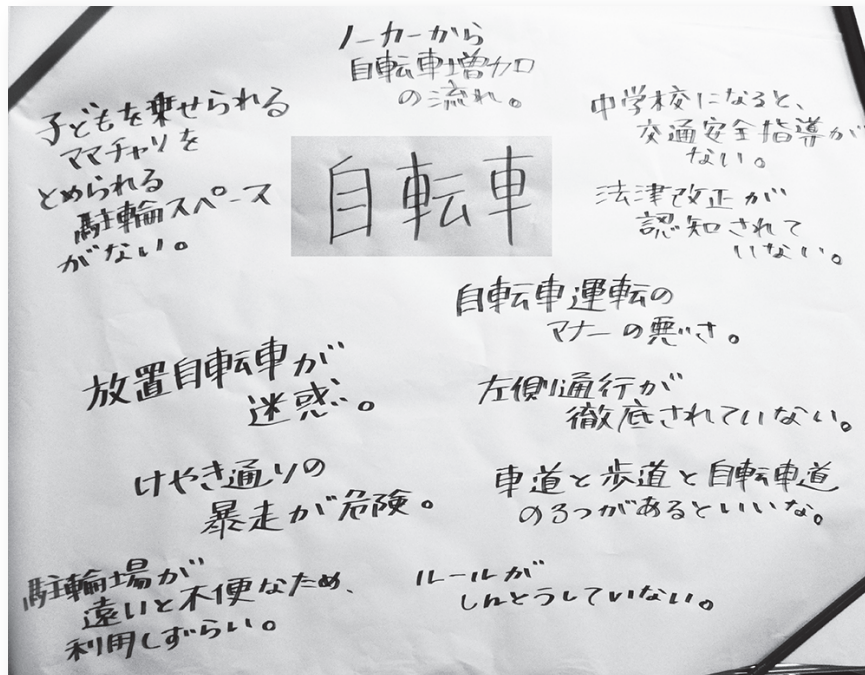 ノーカーから
自転車増加
の流れ。
子どもを乗せられる
ママチャリを
とめられる
駐輪スペース
がない。
自転車
中学校になると、
交通安全指導が
ない。
法律改正が
認知されて
いない。
自転車運転の
マナーの悪さ。
放置自転車が
迷惑。
左側通行が
徹底されていない。
けやき通りの
暴走が危険。
車道と歩道と自転車道
の3つがあるといいな。
駐輪場が
遠いと不便なため、
利用しずらい。
ルールが
しんとうしていない。